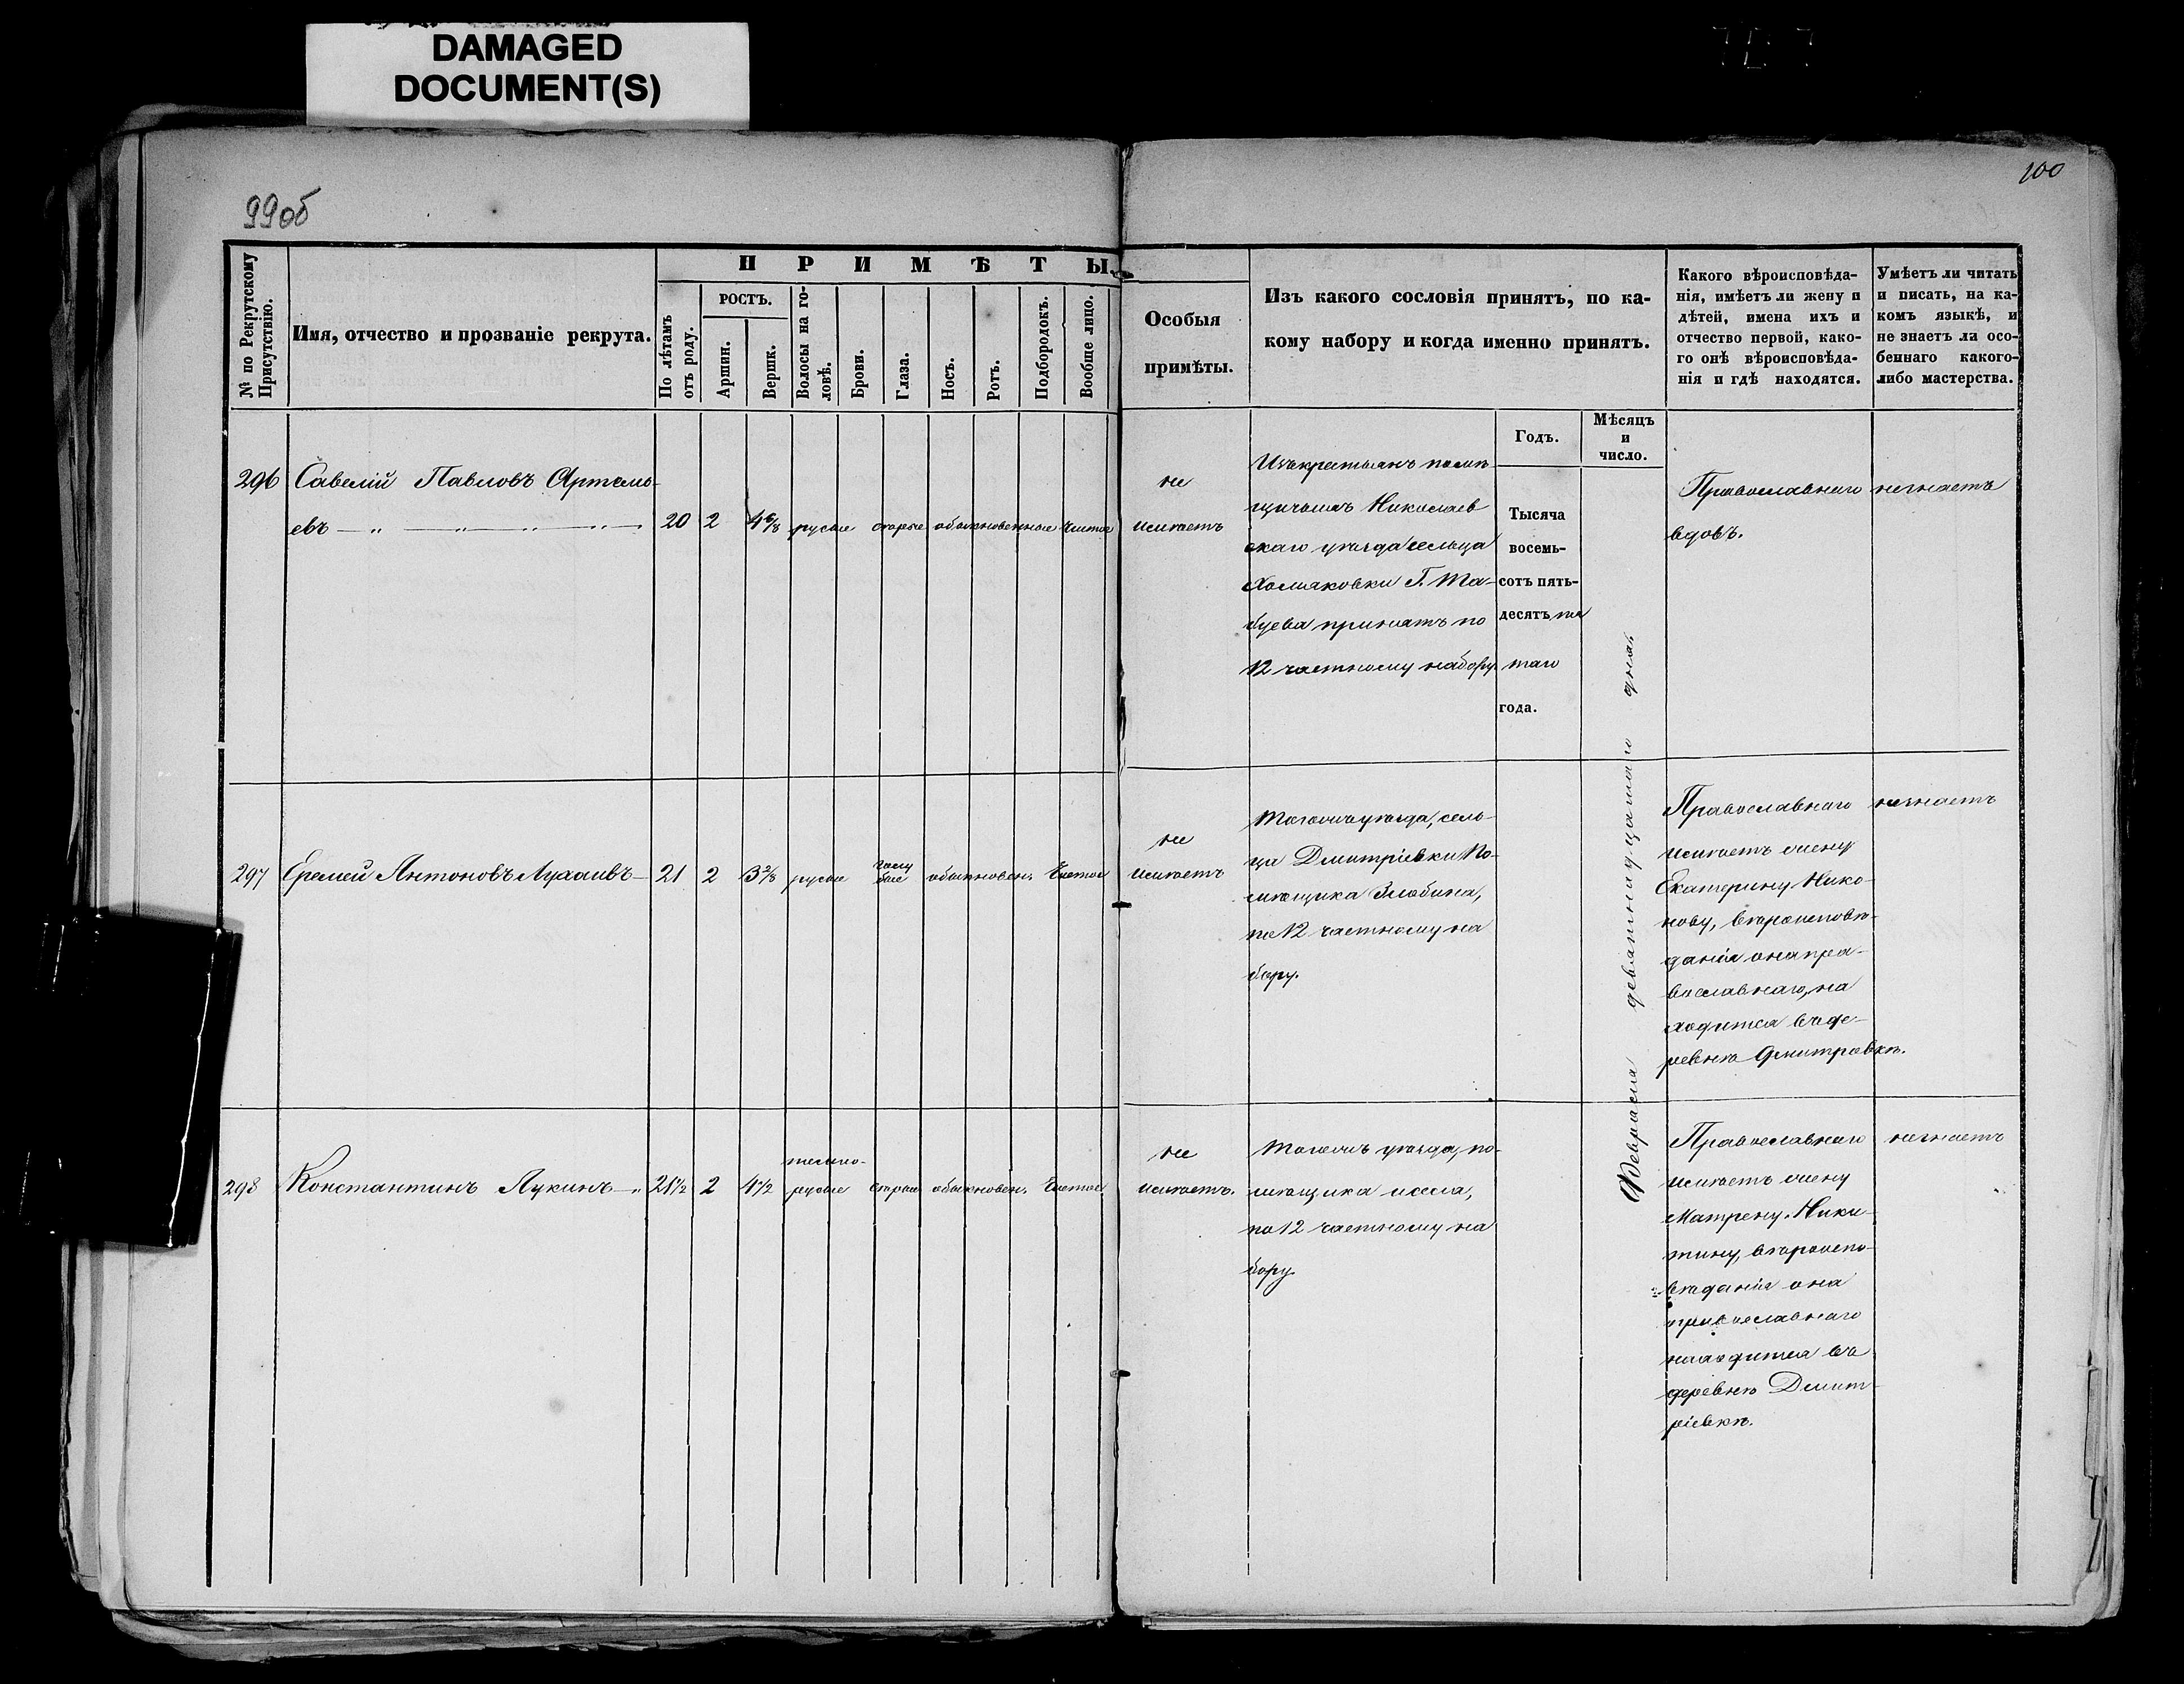 DAMAGED
DOCUMENT(S)
99об
100
№ по Рекрутскому
Присутствію.
Имя, отчество и прозваніе рекрута.
ПРИМѢТЫ.
По лѣтамъ
отъ роду.
РОСТЪ.
Аршин.
Вершк.
Волосы на го-
ловѣ.
Брови.
Глаза.
Носъ.
Ротъ.
Подбородокъ.
Вообще лицо.
Особыя
примѣты.
Изъ какого сословія принятъ, по ка-
кому набору и когда именно принятъ.
Какого вѣроисповѣда-
нія, имѣетъ ли жену и
дѣтей, имена ихъ и
отчество первой, како-
го онѣ вѣроисповѣда-
нія и гдѣ находятся.
Умѣетъ ли читать
и писать, на ка-
комъ языкѣ, и
не знаетъ ли осо-
беннаго какого-
либо мастерства.
Годъ.
Мѣсяцъ
и
число.
296 Савелій Павловъ Артемь-
евъ — " — " — " — " — 20 2 4 6/8 русые сѣрые обыкновенное чистое
не
имѣетъ
Изъ крестьянъ помѣ-
щичьихъ Николаев
скаго уѣзда сельца
Хомяковки Г. Та-
буева принятъ по
12 частному набору.
Тысяча
восемь-
сотъ пять-
десятъ пя
таго
года.
Февраля девятнадцатаго дня.
Православнаго
вдовъ.
незнаетъ
297 Еремей Антоновъ 21 2 3 2/8 русые голу
бые обыкновен. Чистое
не
имѣетъ
Тогожъ уѣзда, сель-
ца Дмитріевки По-
мѣщика Злобина,
по 12 частному на
бору.
Православнаго
имѣетъ жену
Екатерину Нико-
нову, вѣроисповѣ-
данія она пра-
вославнаго, на
ходится въ де-
ревнѣ Дмитревкѣ.
незнаетъ
298 Константинъ Лукинъ — " 21½ 2 4½ темно-
русые сѣрые обыкновен. Чистое
не
имѣетъ.
Тогожъ уѣзда, по-
мѣщика и села,
по 12 частному на
бору.
Православнаго
имѣетъ жену
Матрену Ники-
тину, вѣроиспо-
вѣданія она
православнаго
находится въ
деревнѣ Дмит-
ріевкѣ.
незнаетъ